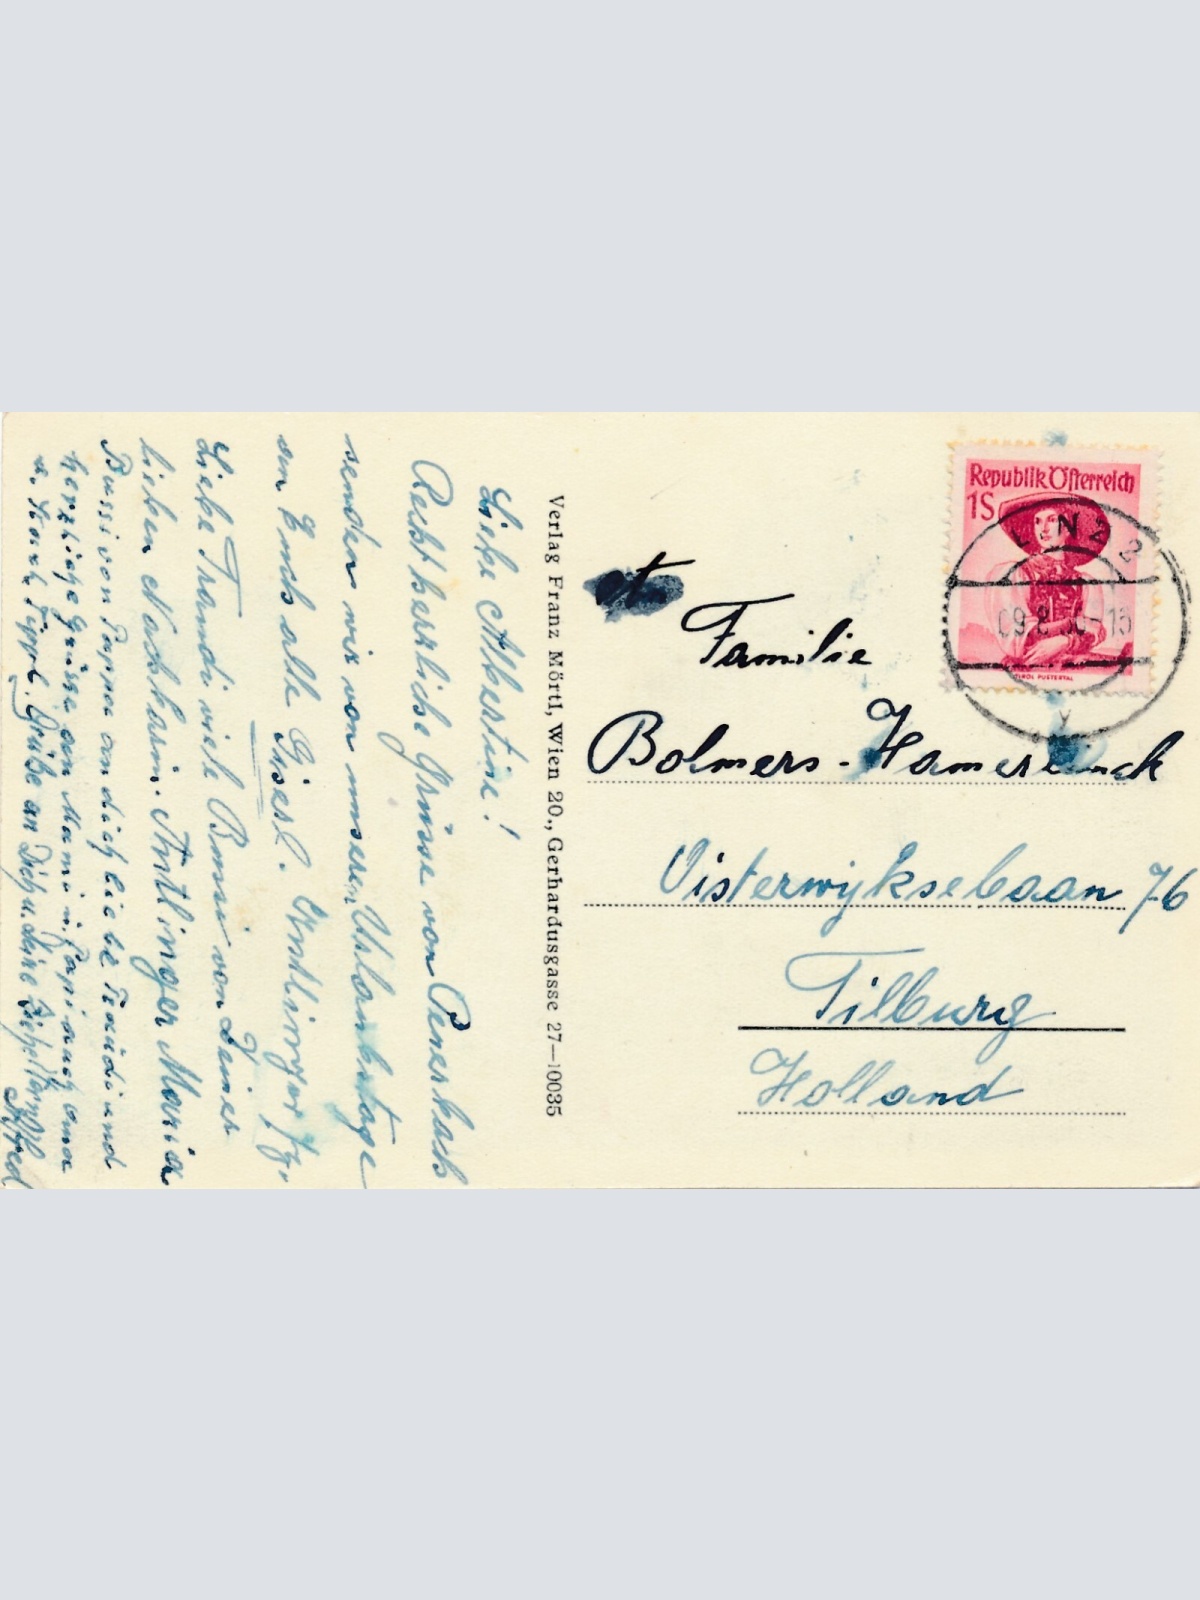 Liebe Albertine!
Recht herzliche Grüsse von
senden wir von unseren
an Euch alle Gisl.
Liebe Traudi viele Bussi von Deiner
lieben Nachbarin. Antlinger Maria
Bussi von an dich liebe Traudi und
herzliche Grüsse an Mami u. Papi auch
u. Grüße an Dich u. Deine
Alfred
Verlag Franz Mörtl, Wien 20., Gerhardusgasse 27—10035
Republik Österreich
1S
TIROL PUSTERTAL
LINZ 2
09.8.50-15
Familie
Bolmers - Hamerlinck
Oisterwyksebaan 76
Tilburg
Holland